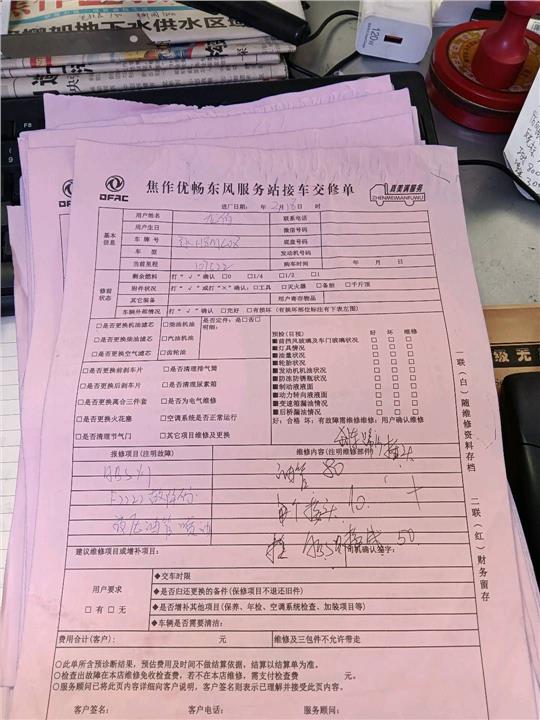 加地下水供水区
120W
F8
DFAC
焦作优畅东风服务站接车交修单
真美满服务
ZHENMEIMANFUWU
进厂日期: 年 2月18日 时
基本信息
用户姓名 联系电话
用户生日 微信号码
车牌号 底盘号码
车型 发动机号码
当前里程 购车时间 年 月 日
修前状态
剩余燃料 打"√"确认 □0 □1/4 □1/2 □1
附件状况 打"√"或打"×"确认:□工具 □灭火器 □备胎 □千斤顶
其它装备 用户寄存物品
车辆外部情况 打"√"确认 □完好 □有损坏(有损坏部位标注在下表左图)
□是否更换机油滤芯 □柴油机油
□是否更换柴油滤芯 □汽油机油
□是否更换空气滤芯 □齿轮油
是否定件:是□否□
明细:
□是否更换前刹车片 □是否清理排气筒
□是否更换后刹车片 □是否清理尿素箱
□是否更换离合三件套 □是否为电气维修
□是否更换火花塞 □空调系统是否正常运行
□是否清理节气门 □其它项目维修及更换
预检(目视) 好 坏 维修
■前挡风玻璃及车门玻璃状况 □ □ □
■灯具情况 □ □ □
■油量状况 □ □ □
■轮胎状况 □ □ □
■发动机机油状况 □ □ □
■防冻防锈瓶状况 □ □ □
■制动液液面 □ □ □
■动力转向液液面 □ □ □
■变速箱漏油情况 □ □ □
■后桥漏油情况 □ □ □
好:合格 坏:有故障需维修维修:用户确认维修
报修项目(注明故障) 维修内容(注明维修部门)
油管 80
接头 10.
50
建议维修项目或增补项目: 司机确认签字:
用户要求
□有 □无
◆交车时限
◆是否归还更换的备件(保修项目不退还旧件)
◆是否增补其他项目(保养、年检、空调系统检查、加装项目等)
◆车辆是否需要清洁:
费用合计(客户): 元 维修及三包件不允许带走
○此单所含预诊断结果,预估费用及时间不做结算依据,结算以结算单为准。
○检查出故障在本店维修免收检查费,若不在本店维修,需支付检查费 元。
○服务顾问已将此页内容详细向客户说明,客户签名则表示已理解并接受此页内容。
客户签名: 客户电话: 服务顾问:
一联(白)随维修资料存档
二联(红)财务留存